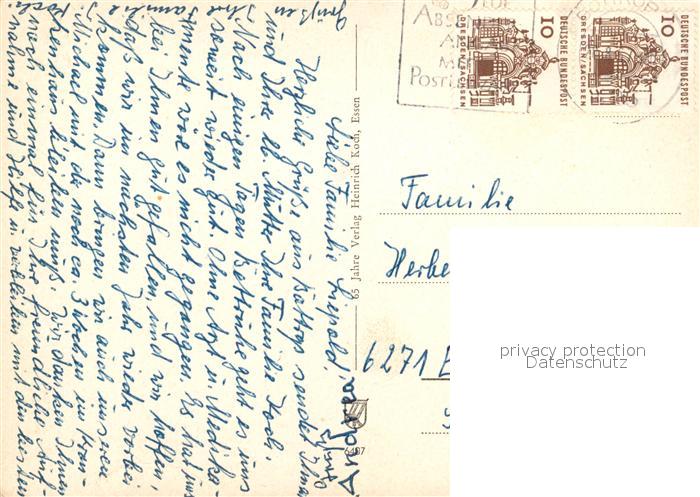 Liebe Familie Leipold!
Herzliche Grüße aus Bottrop sendet Ihnen
und Ihre lb. Mutter Ihre Familie Koch.
Nach einigen Tagen Bettruhe geht es uns
soweit wieder gut. Ohne Arzt u. Medika-
mente wäre es nicht gegangen. Es hat uns
bei Ihnen gut gefallen, und wir hoffen,
daß wir im nächsten Jahr wieder vorbei
kommen. Dann bringen wir auch unseren
Michael mit, der noch ca. 3 Wochen im Kran-
kenhaus bleiben muß. Wir danken Ihnen
noch einmal für Ihre freundliche Auf-
nahme und Hilfe u. verbleiben mit den besten
Grüßen
Ihre
Familie
Koch.
Andrea
65 Jahre Verlag Heinrich Koch, Essen
6407
10
DEUTSCHE BUNDESPOST
DRESDEN/SACHSEN
10
DEUTSCHE BUNDESPOST
DRESDEN/SACHSEN
Familie
Herbe
6271
privacy protection
Datenschutz